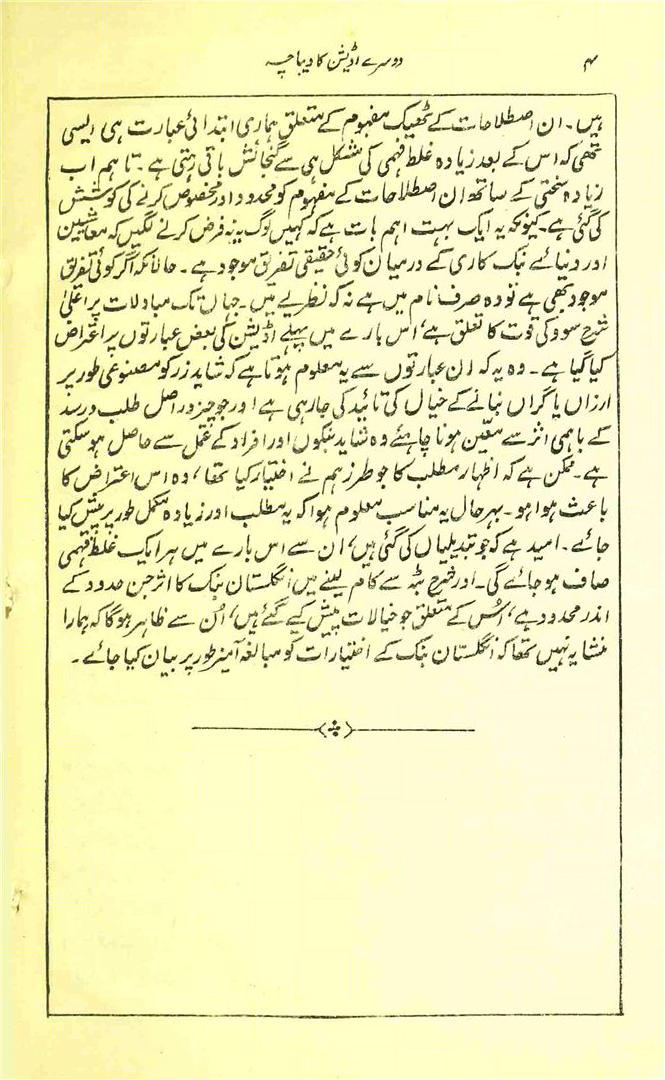 ۴ دوسرے اڈیشن کا دیباچہ
ہیں۔ ان اصطلاحات کے ٹھیک مفہوم کے متعلق ہماری ابتدائی عبارت ہی ایسی
تھی کہ اس کے بعد زیادہ غلط فہمی کی مشکل ہی سے گنجائش باقی رہتی ہے۔ تاہم اب
زیادہ سختی کے ساتھ ان اصطلاحات کے مفہوم کو محدود اور مخصوص کرنے کی کوشش
کی گئی ہے۔ کیونکہ یہ ایک بہت اہم بات ہے کہ کہیں لوگ یہ نہ فرض کرنے لگیں کہ معاشیین
اور دنیائے بنک کاری کے درمیان کوئی حقیقی تفریق موجود ہے۔ حالانکہ اگر کوئی تفریق
موجود بھی ہے تو وہ صرف نام میں ہے نہ کہ نظریے میں۔ جہاں تک مبادلات پر اعلیٰ
شرح سود کی قوت کا تعلق ہے، اس بارے میں پہلے اڈیشن کی بعض عبارتوں پر اعتراض
کیا گیا ہے۔ وہ یہ کہ ان عبارتوں سے یہ معلوم ہوتا ہے کہ شاید زر کو مصنوعی طور پر
ارزاں یا گراں بنانے کے خیال کی تائید کی جا رہی ہے اور جو چیز در اصل طلب و رسد
کے باہمی اثر سے معین ہونا چاہئے وہ شاید بنکوں اور افراد کے عمل سے حاصل ہو سکتی
ہے۔ ممکن ہے کہ اظہار مطلب کا جو طرز ہم نے اختیار کیا تھا، وہ اس اعتراض کا
باعث ہوا ہو۔ بہر حال یہ مناسب معلوم ہوا کہ یہ مطلب اور زیادہ مکمل طور پر پیش کیا
جائے۔ امید ہے کہ جو تبدیلیاں کی گئی ہیں، ان سے اس بارے میں ہر ایک غلط فہمی
صاف ہو جائے گی۔ اور شرح بٹہ سے کام لینے میں انگلستان بنک کا اثر جن حدود کے
اندر محدود ہے، اُس کے متعلق جو خیالات پیش کیے گئے ہیں، اُن سے ظاہر ہوگا کہ ہمارا
منشا یہ نہیں تھا کہ انگلستان بنک کے اختیارات کو مبالغہ آمیز طور پر بیان کیا جائے۔